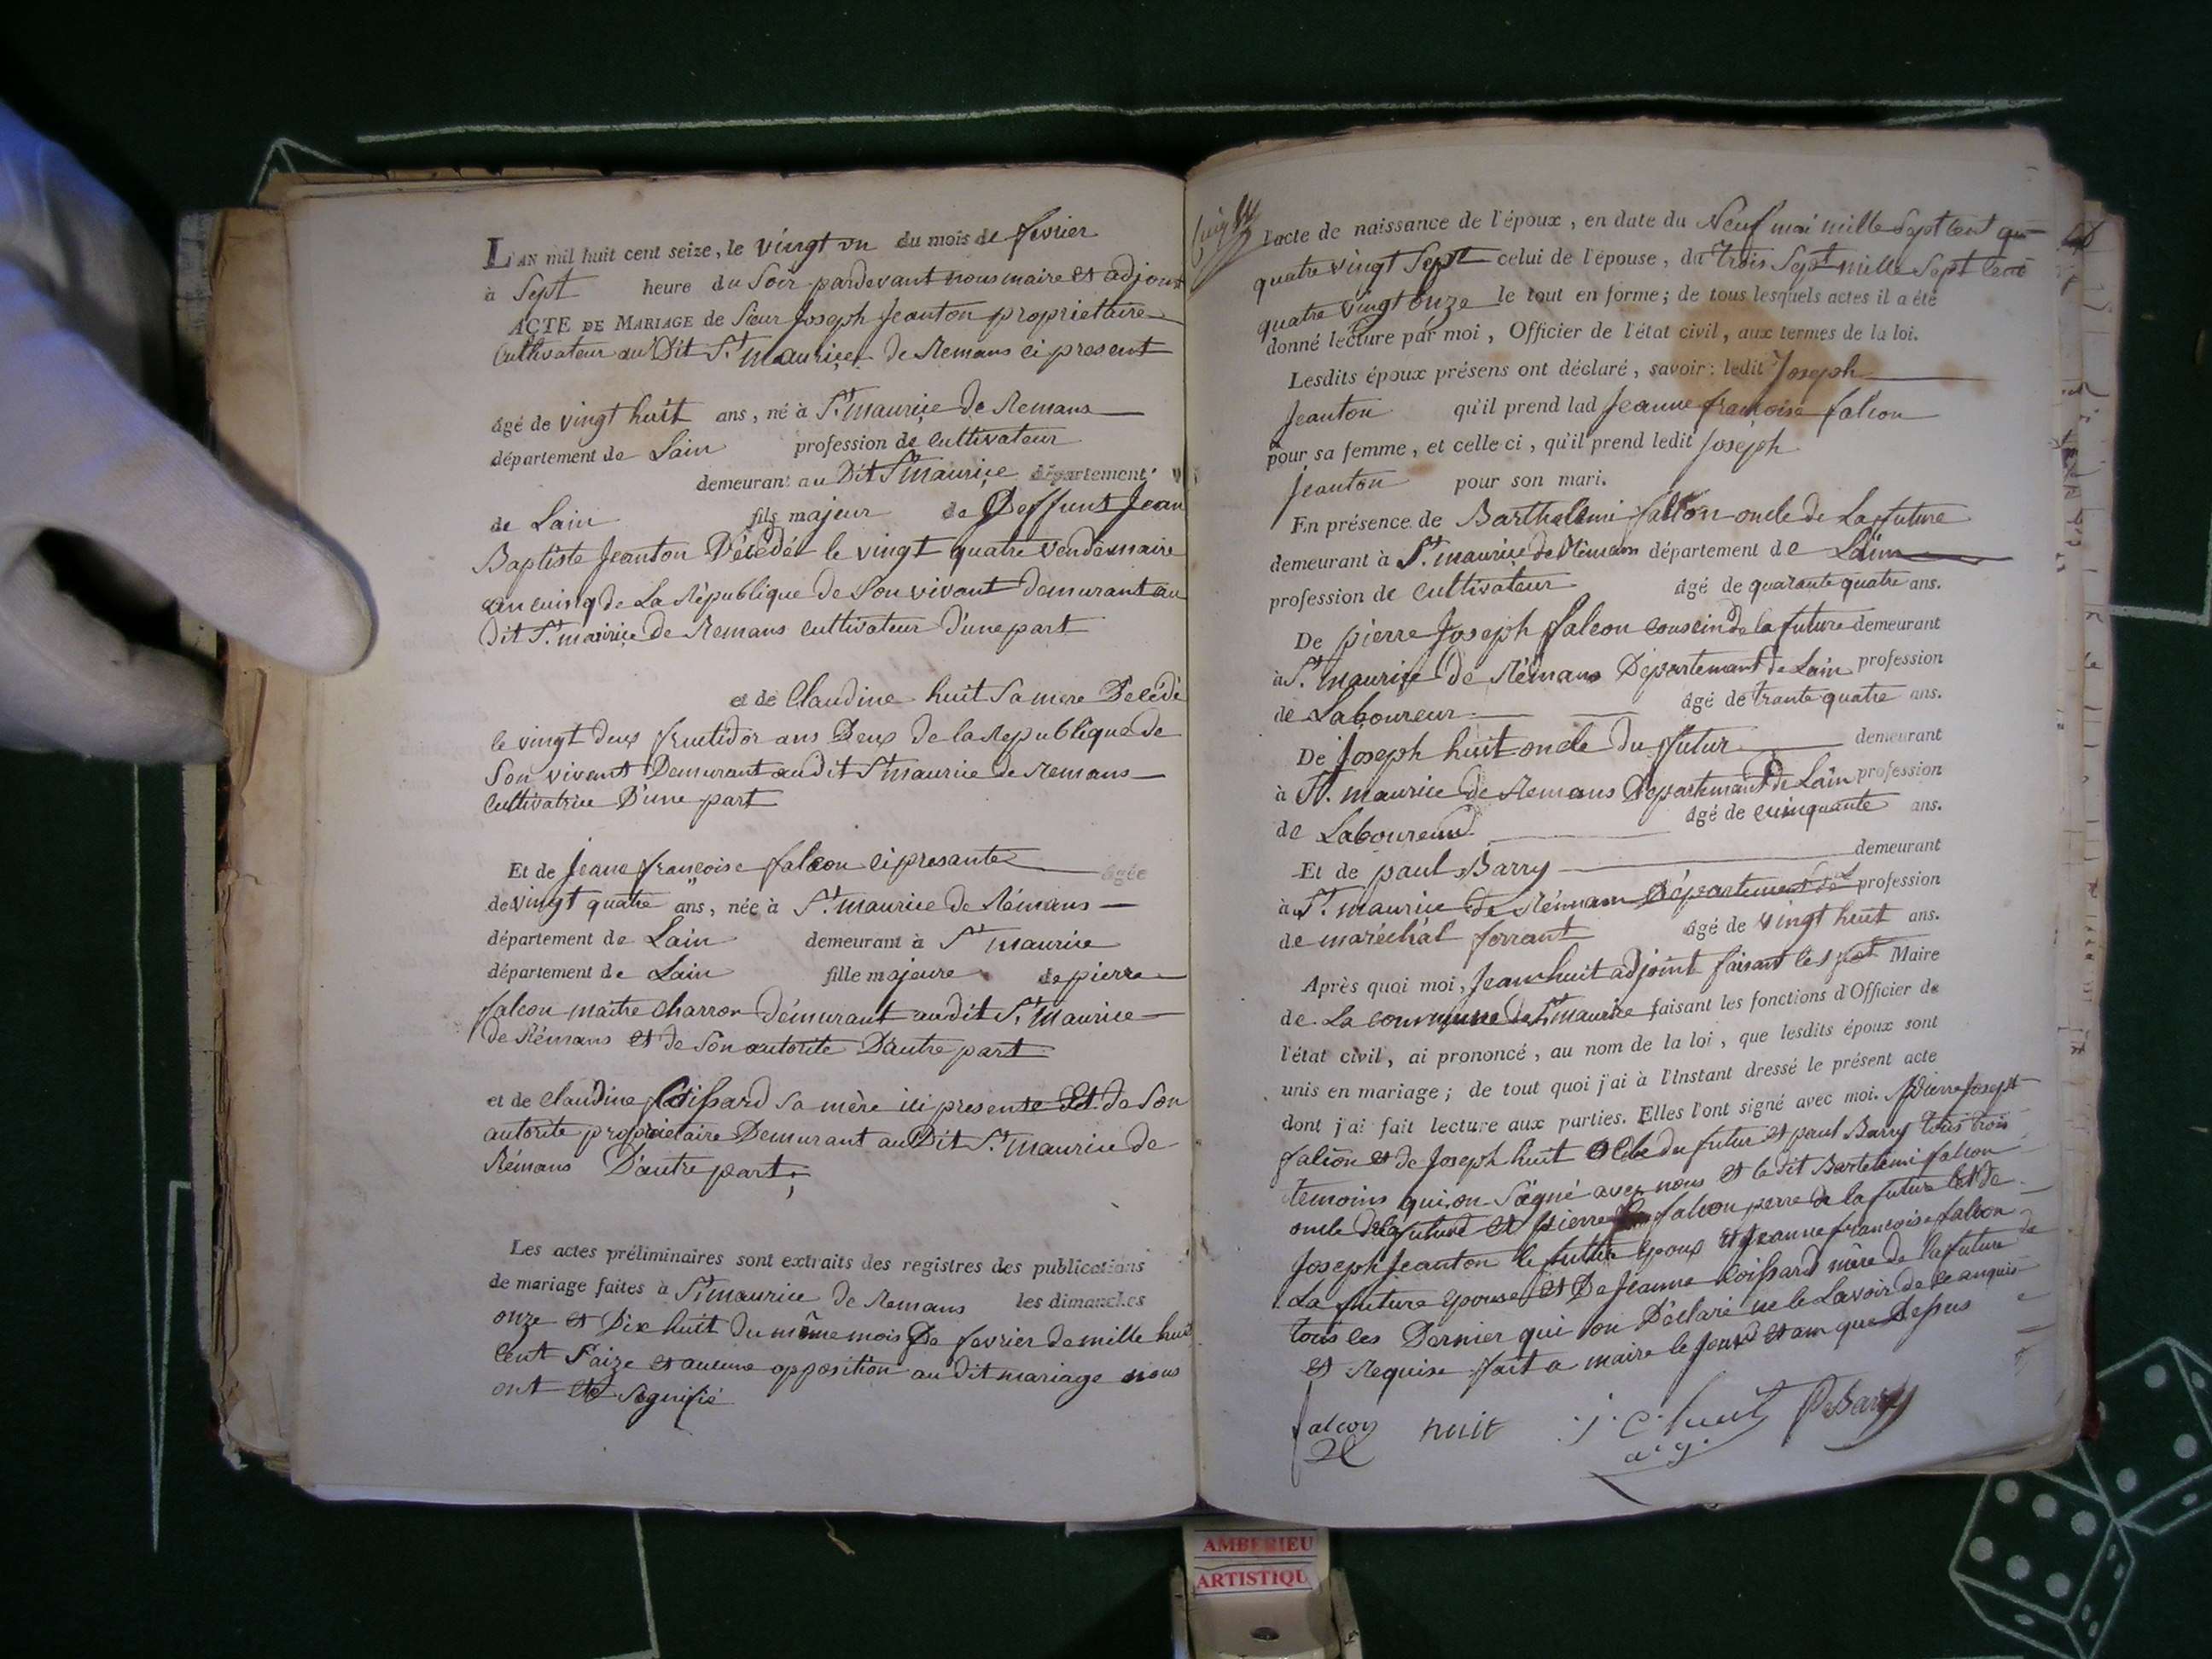 L'AN mil huit cent seize, le vingt un du mois de fevrier
à Sept heure du Soir pardevant nous maire et adjoint
ACTE DE MARIAGE de Sieur Joseph Jeanton proprietaire
Cultivateur au Dit St. maurice de Remans ci present
âgé de vingt huit ans, né à St. maurice de Remans
département de Lain profession de cultivateur
demeurant au Dit St maurice département
de Lain fils majeur de Deffunt Jean
Baptiste Jeanton Décedér le vingt quatre Vendémiaire
an cuinq de La République de Son vivant demurant au
Dit St. maurice de Remans cultivateur D'une part
et de Claudine huit Sa mere Décédé
le vingt deux fructidor ans Deux de la Republique de
Son vivant Demurant audit St maurice de Remans
Cultivatrice D'une part
Et de Jeane françoise falcon ci presante âgée
de vingt quatre ans, née à St. maurice de Rémans
département de Lain demeurant à St maurice
département de Lain fille majeure de pierre
falcon maitre charron démurant audit St. Maurice
de Rémans et de Son autorite D'autre part
et de Claudine sa mère ici presente Et de Son
autorite proprietaire Demurant au Dit St. maurice de
Rémans D'autre part;
Les actes préliminaires sont extraits des registres des publications
de mariage faites à St maurice de Remans les dimanches
onze et Dix huit du même mois De fevrier de mille huit
Cent Saize et aucune opposition au dit mariage nous
ont été Signifié
l'acte de naissance de l'époux, en date du Neuf mai mille Sept Cent
quatre vingt Sept celui de l'épouse, du trois Sept mille Sept Cent
quatre vingt onze le tout en forme; de tous lesquels actes il a été
donné lecture par moi, Officier de l'état civil, aux termes de la loi.
Lesdits époux présens ont déclaré, savoir: ledit Joseph
Jeanton qu'il prend lad Jeanne françoise falcon
pour sa femme, et celle ci, qu'il prend ledit Joseph
Jeanton pour son mari.
En présence de Barthelemi falcon oncle de La future
demeurant à St. maurice de Rémans département de Lain
profession de cultivateur âgé de quarante quatre ans.
De pierre Joseph falcon couscin de la future demeurant
à St. maurice de Rémans Département de Lain profession
de Laboureur âgé de trante quatre ans.
De Joseph huit oncle Du futur demeurant
à St. maurice de Remans Département de Lain profession
de Laboureur âgé de cuinquante ans.
Et de paul Barry demeurant
à St. maurice de Rémans Département de profession
de maréchal ferrant âgé de vingt huit ans.
Après quoi moi, Jean huit adjoint faisant les Maire
de La commune de St maurice faisant les fonctions d'Officier de
l'état civil, ai prononcé, au nom de la loi, que lesdits époux sont
unis en mariage; de tout quoi j'ai à l'instant dressé le présent acte
dont j'ai fait lecture aux parties. Elles l'ont signé avec moi. pierre Joseph
falcon et de Joseph huit du futur et paul Barry tous trois
temoins qui on Signé avec nous et le dit Bartelemi falcon
oncle de la future et pierre falcon perre de la future et de
Joseph Jeanton le futur Epoux et Jeanne francoise falcon
La future epouse et De Jeanne mère de la future
tous les Dernier qui on Déclaré ne le Savoir de ce anquis
et Requise fait a maire le Jour et an que Desus
falcon huit j. C. huit P Barry
AMBERIEU
ARTISTIQU